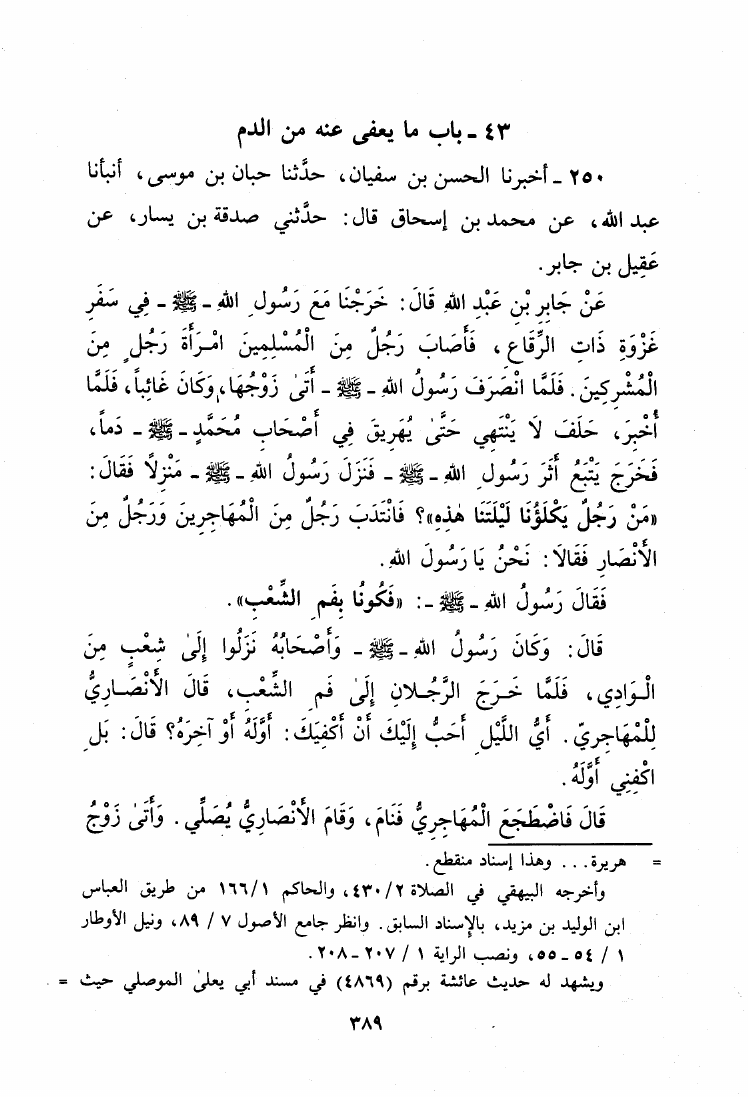 ٤٣ - باب ما يعفى عنه من الدم
٢٥٠ - أخبرنا الحسن بن سفيان، حدَّثنا حبان بن موسى، أنبأنا
عبد الله، عن محمد بن إسحاق قال: حدَّثني صدقة بن يسار، عن
عَقِيل بن جابر.
عَنْ جَابِرِ بْنِ عَبْدِ اللهِ قَالَ: خَرَجْنَا مَعَ رَسُولِ اللهِ - ﷺ - فِي سَفَرِ
غَزْوَةِ ذَاتِ الرِّقَاعِ، فَأَصَابَ رَجُلٌ مِنَ الْمُسْلِمِينَ امْرَأَةَ رَجُلٍ مِنَ
الْمُشْرِكِينَ. فَلَمَّا انْصَرَفَ رَسُولُ اللهِ - ﷺ - أَتَىٰ زَوْجُهَا، وَكَانَ غَائِباً، فَلَمَّا
أُخْبِرَ، حَلَفَ لَا يَنْتَهِي حَتَّىٰ يُهَرِيقَ فِي أَصْحَابِ مُحَمَّدٍ - ﷺ - دَماً،
فَخَرَجَ يَتْبَعُ أَثَرَ رَسُولِ اللهِ - ﷺ - فَنَزَلَ رَسُولُ اللهِ - ﷺ - مَنْزِلاً فَقَالَ:
«مَنْ رَجُلٌ يَكْلَؤُنَا لَيْلَتَنَا هٰذِهِ»؟ فَانْتَدَبَ رَجُلٌ مِنَ الْمُهَاجِرِينَ وَرَجُلٌ مِنَ
الأَنْصَارِ فَقَالَا: نَحْنُ يَا رَسُولَ اللهِ.
فَقَالَ رَسُولُ اللهِ - ﷺ -: «فَكُونَا بِفَمِ الشِّعْبِ».
قَالَ: وَكَانَ رَسُولُ اللهِ - ﷺ - وَأَصْحَابُهُ نَزَلُوا إِلَىٰ شِعْبٍ مِنَ
الْوَادِي، فَلَمَّا خَرَجَ الرَّجُلَانِ إِلَىٰ فَمِ الشِّعْبِ، قَالَ الأَنْصَارِيُّ
لِلْمُهَاجِرِيِّ. أَيُّ اللَّيْلِ أَحَبُّ إِلَيْكَ أَنْ أَكْفِيَكَ: أَوَّلَهُ أَوْ آخِرَهُ؟ قَالَ: بَلِ
اكْفِنِي أَوَّلَهُ.
قَالَ فَاضْطَجَعَ الْمُهَاجِرِيُّ فَنَامَ، وَقَامَ الأَنْصَارِيُّ يُصَلِّي. وَأَتَىٰ زَوْجُ
= هريرة... وهذا إسناد منقطع.
وأخرجه البيهقي في الصلاة ٢/ ٤٣٠، والحاكم ١/ ١٦٦ من طريق العباس
ابن الوليد بن مزيد، بالإسناد السابق. وانظر جامع الأصول ٧ / ٨٩، ونيل الأوطار
١ / ٥٤ - ٥٥، ونصب الراية ١ / ٢٠٧ - ٢٠٨.
ويشهد له حديث عائشة برقم (٤٨٦٩) في مسند أبي يعلىٰ الموصلي حيث =
٣٨٩